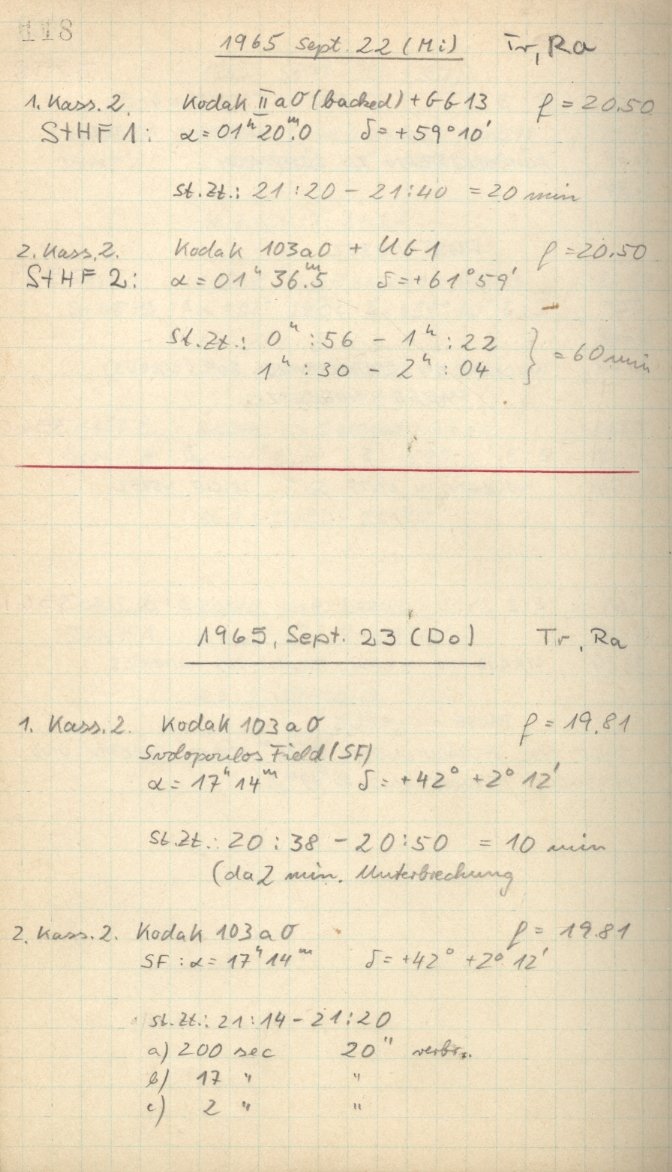 118
1965 Sept. 22 (Mi) Tr, Ra
1. Kass. 2. Kodak IIaO (backed) + GG13 f = 20.50
StHF 1: α = 01ʰ 20ᵐ.0 δ = +59° 10'
St. Zt.: 21:20 – 21:40 = 20 min
2. Kass. 2. Kodak 103aO + UG1 f = 20.50
StHF 2: α = 01ʰ 36ᵐ.5 δ = +61° 59'
St. Zt.: 0ʰ:56 – 1ʰ:22
1ʰ:30 – 2ʰ:04 } = 60 min
1965, Sept. 23 (Do) Tr, Ra
1. Kass. 2. Kodak 103aO f = 19.81
Field (SF)
α = 17ʰ 14ᵐ δ = +42° +2° 12'
St. Zt.: 20:38 – 20:50 = 10 min
(da 2 min. Unterbrechung
2. Kass. 2. Kodak 103aO f = 19.81
SF: α = 17ʰ 14ᵐ δ = +42° +2° 12'
St. Zt.: 21:14 – 21:20
a) 200 sec 20" verbr.
b) 17 " "
c) 2 " "